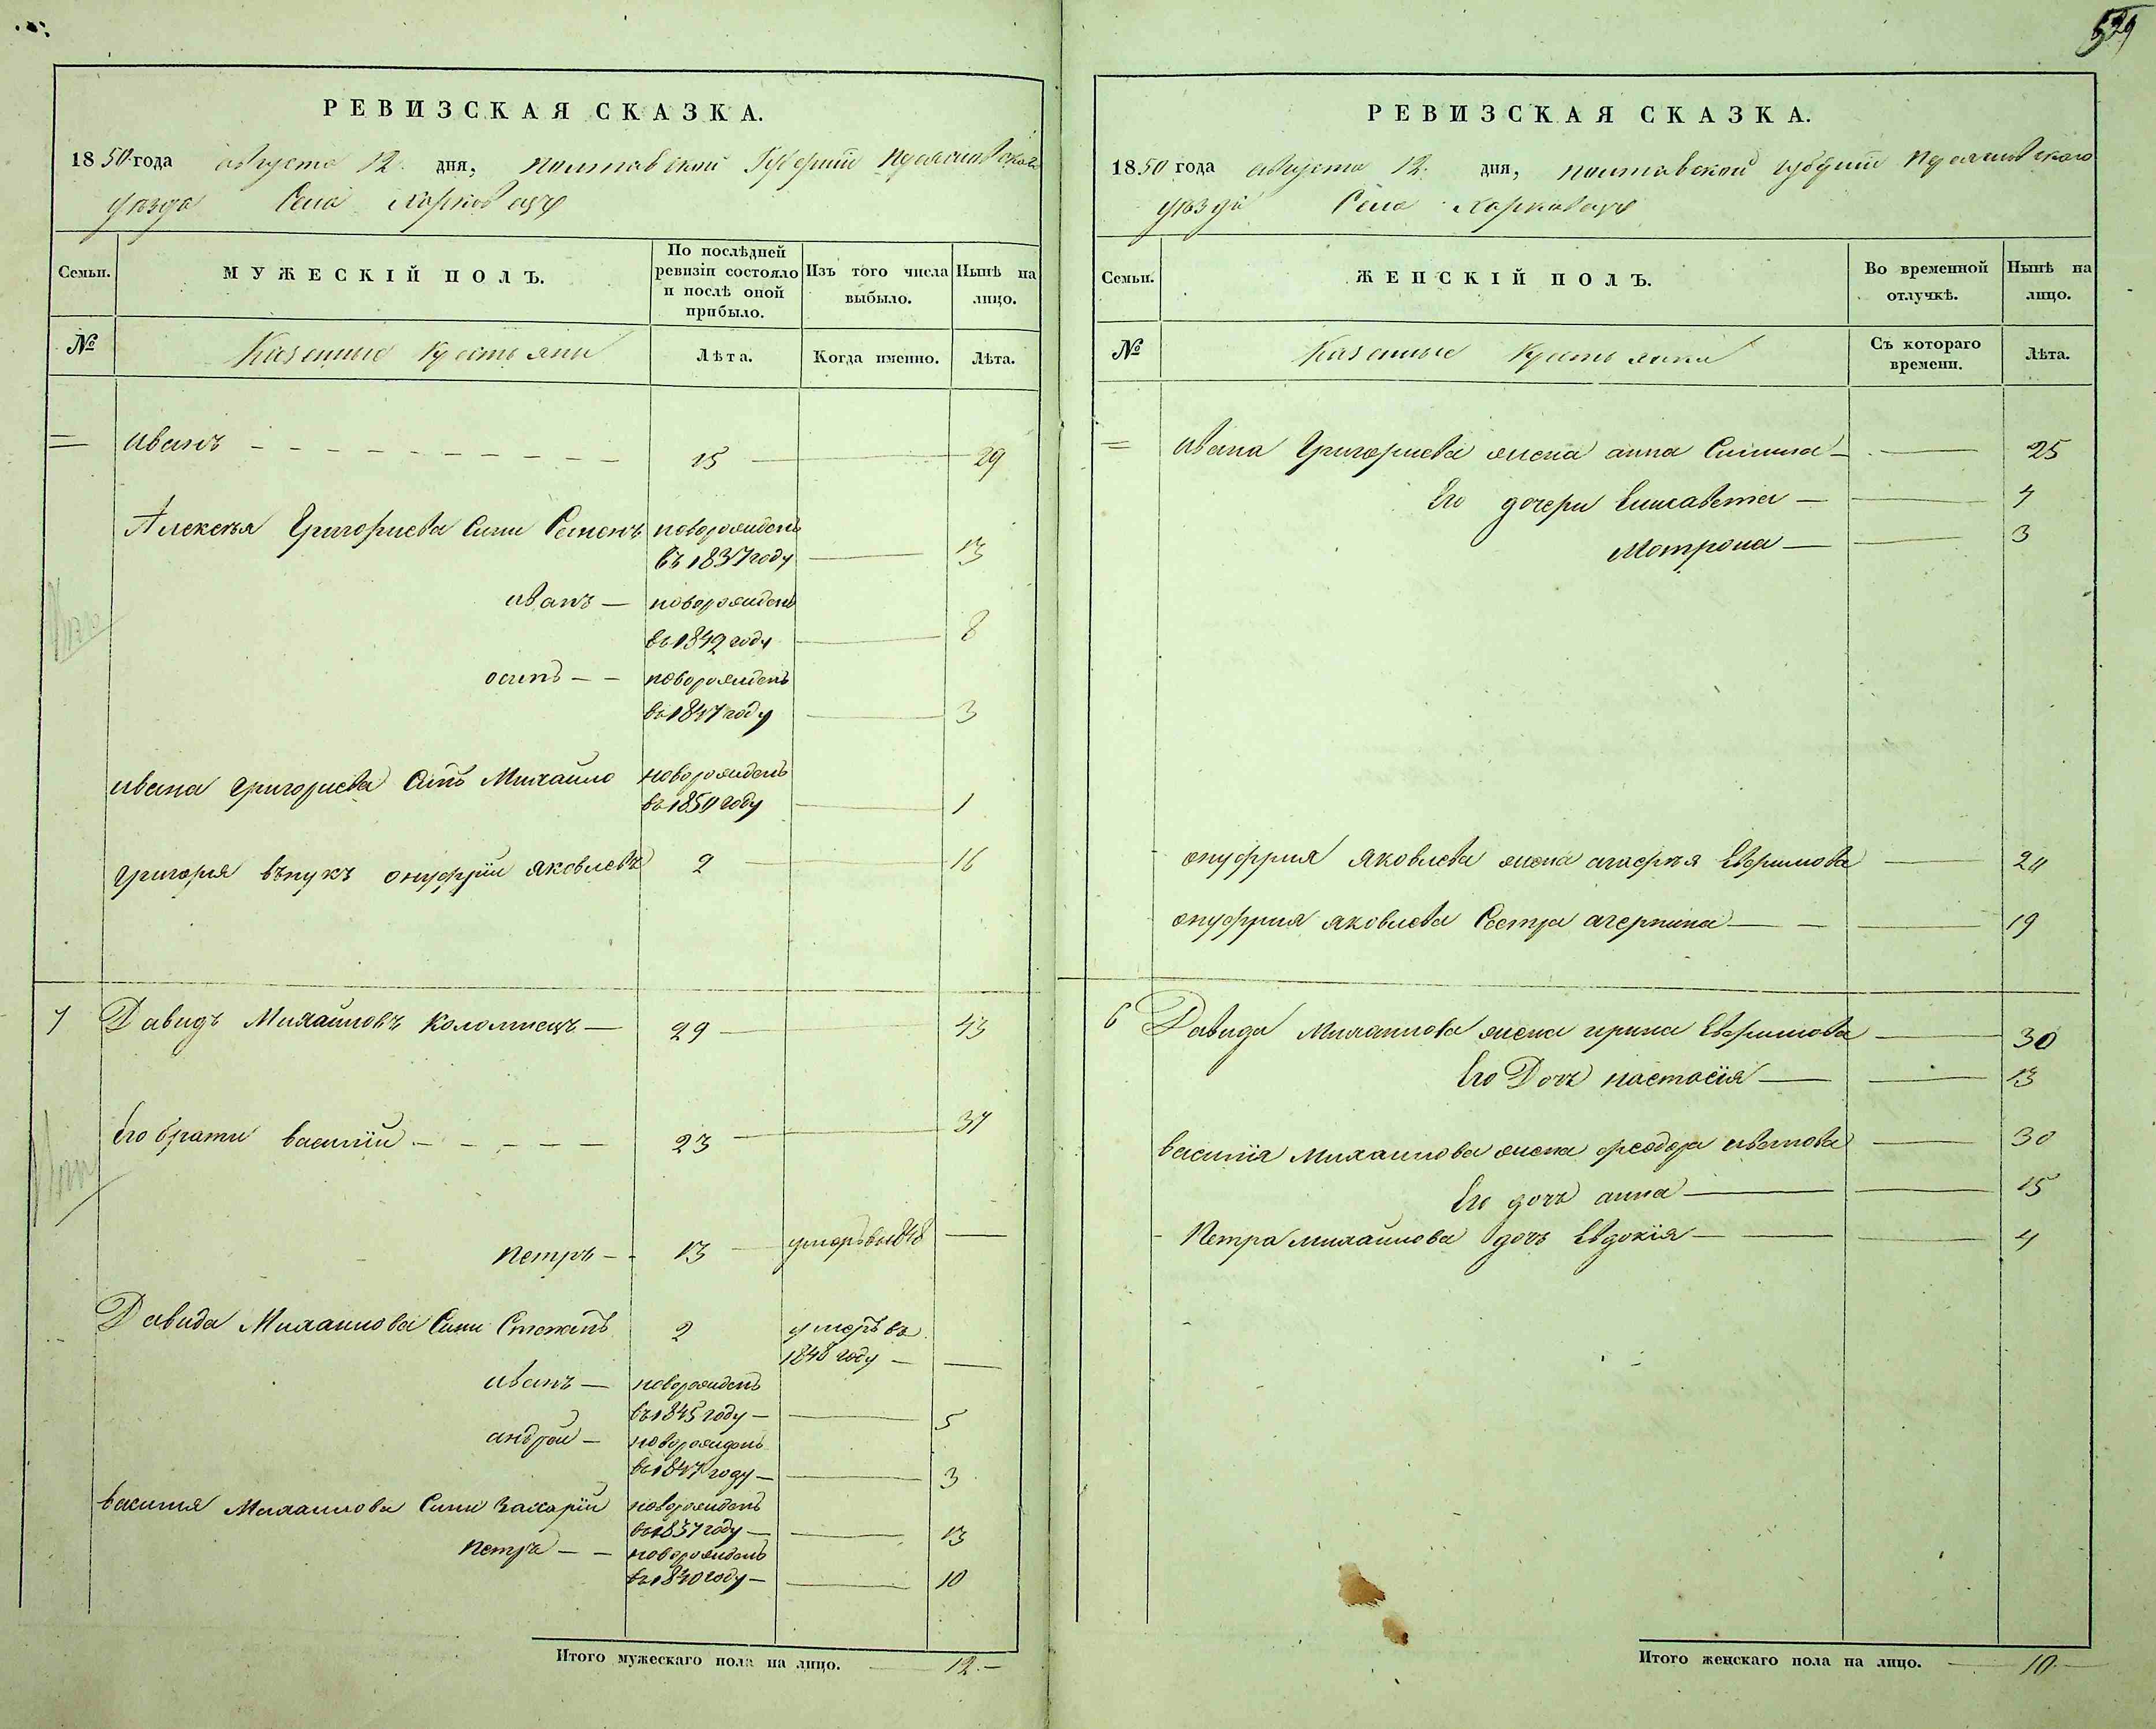 529
РЕВИЗСКАЯ СКАЗКА.
1850 года августа 12 дня, полтавской Губернии
уѣзда Села Харковецъ
Семьи.
МУЖЕСКІЙ ПОЛЪ.
По послѣдней ревизіи состояло и послѣ оной прибыло.
Изъ того числа выбыло.
Нынѣ на лицо.
№
Казенные Крестьяни
Лѣта.
Когда именно.
Лѣта.
= иванъ 15 29
Алексѣя Григориева Сини Семенъ новорожденъ
въ 1837 году 13
иванъ — новорожденъ
въ 1842 году 8
осипъ — — новорожденъ
въ 1847 году 3
ивана григориева Синъ Михайло новорожденъ
въ 1850 году 1
григория внукъ онуфрїи яковлевъ 2 16
7 Давидъ Михайловъ Коломиецъ — 29 — 43
Его брати василїи 23 37
петръ — - 13 умеръ въ 1848 —
Давида Михаилова Сини Степанъ 2 умеръ въ
1848 году — —
иванъ — новорожденъ
въ 1845 году — 5
андрей — новорожденъ
въ 1847 году — 3
василия Михаилова Сини Захарїи новорожденъ
въ 1837 году — 13
петръ — — новорожденъ
въ 1840 году — 10
Итого мужескаго пола на лицо. 12.—
РЕВИЗСКАЯ СКАЗКА.
1850 года августа 12 дня, полтавской губернии
уѣзда Села Харковецъ
Семьи.
ЖЕНСКІЙ ПОЛЪ.
Во временной отлучкѣ.
Нынѣ на лицо.
№
Казенные Крестьянки
Съ котораго времени.
Лѣта.
= ивана Григориева жена анна 25
Его дочери Елисавета — 4
Мотрона — 3
онуфрия яковлева жена агафѣя Евфимова 24
онуфрия яковлева Сестра 19
6 Давида Михаилова жена ирина Евфимова 30
Его Дочь настасїя — 13
василїя михаилова жена феодора 30
Его дочь анна 15
Петра михаилова дочь Евдокїя — 4
Итого женскаго пола на лицо. 10.—